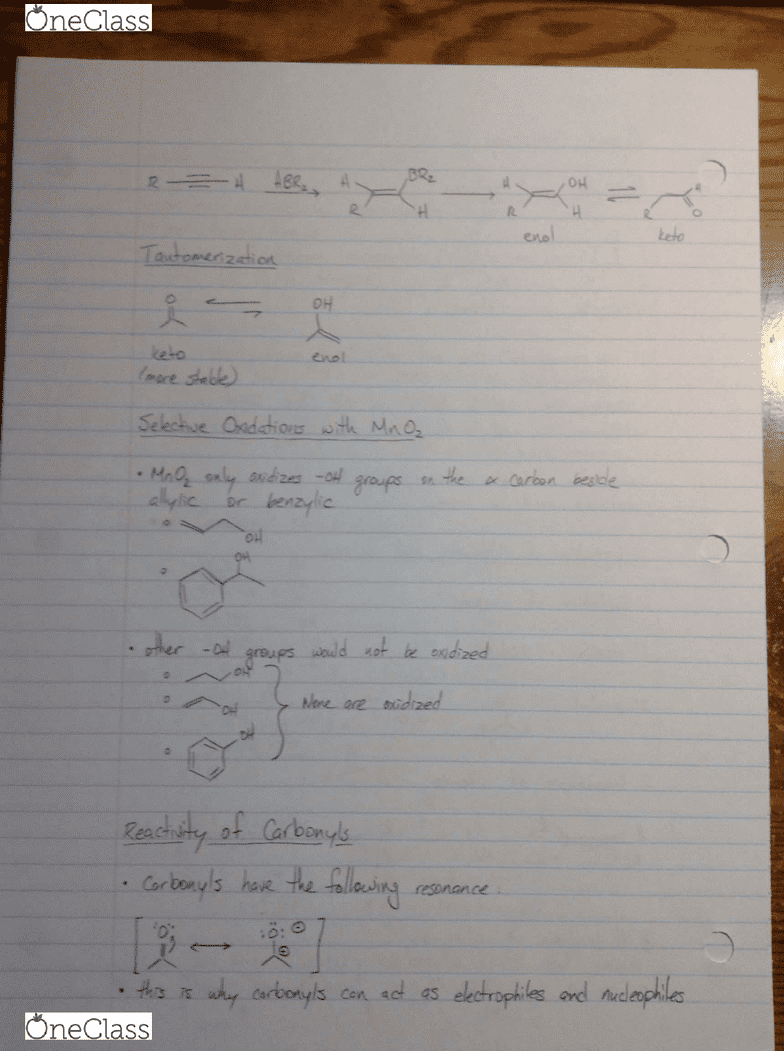 OneClass
R H HBR₂ H BR₂ R H H OH R H R H O
enol keto
Tautomerization
O OH
keto enol
(more stable)
Selective Oxidations with MnO₂
• MnO₂ only oxidizes -OH groups on the α carbon beside
allylic or benzylic
OH
OH
• other -OH groups would not be oxidized
OH
OH None are oxidized
OH
Reactivity of Carbonyls
• Carbonyls have the following resonance:
[ :O: ↔ :Ö: ⊖ ⊕ ]
• this is why carbonyls can act as electrophiles and nucleophiles
OneClass